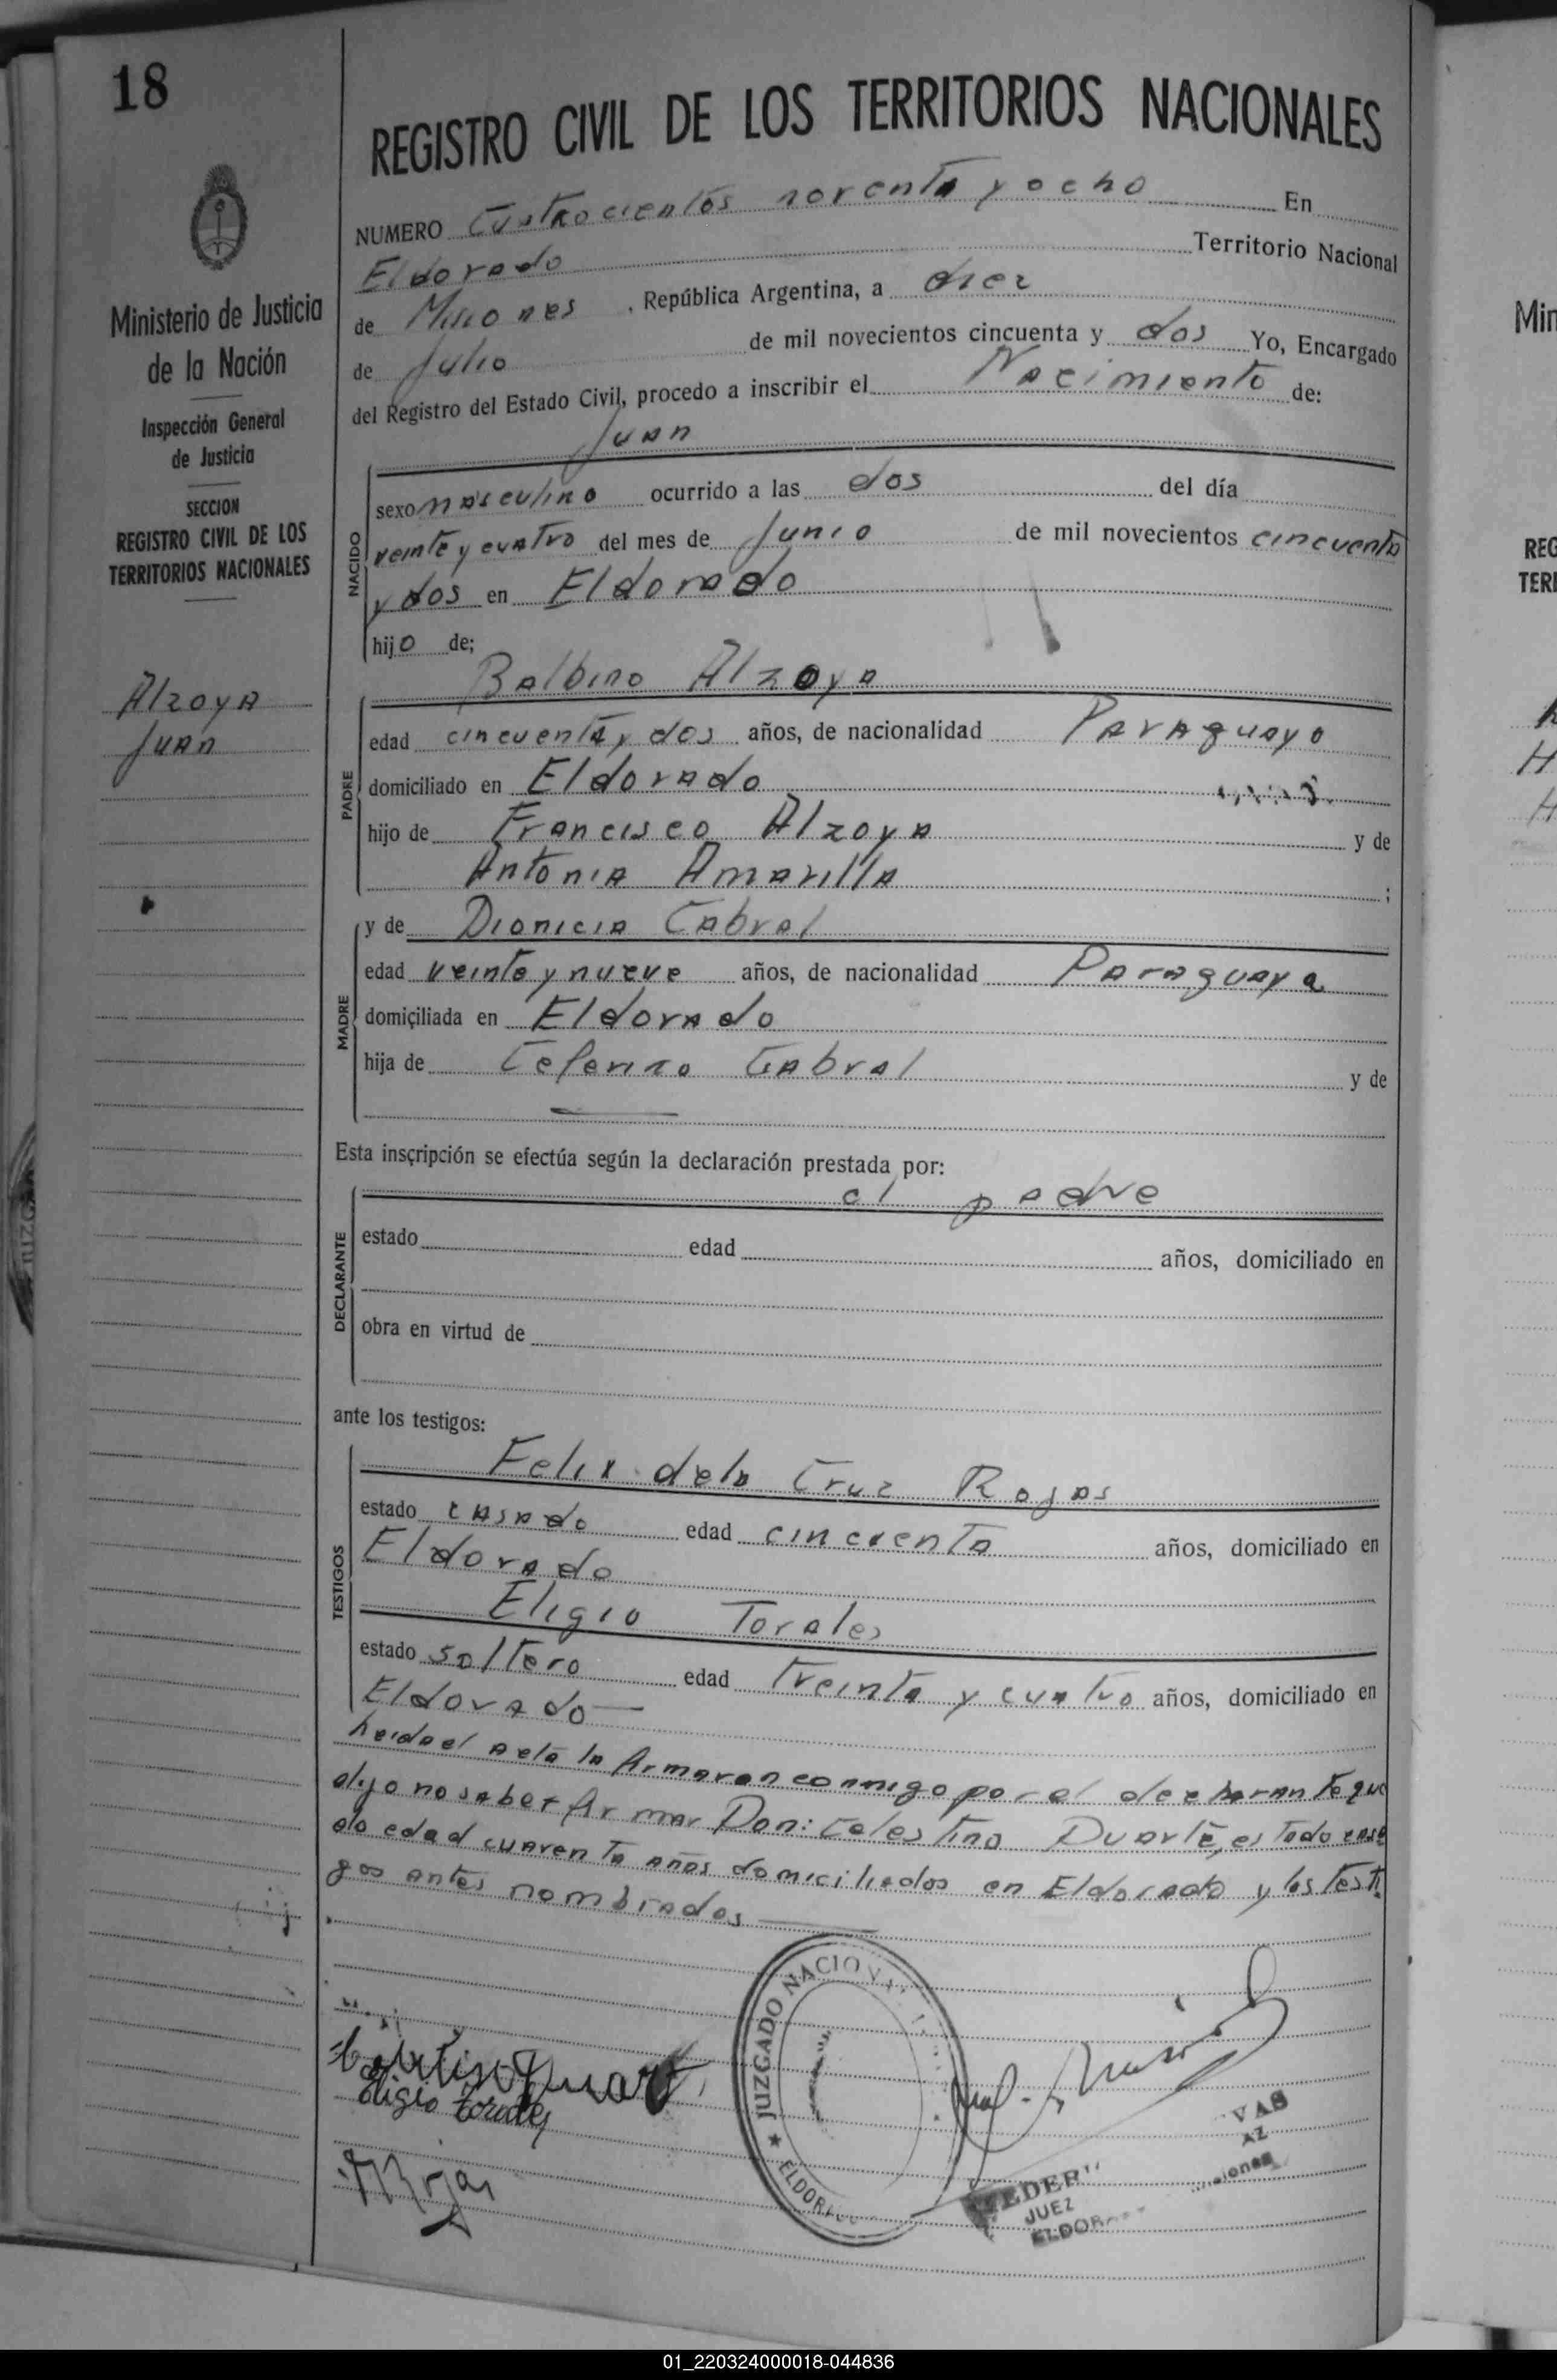 18
REGISTRO CIVIL DE LOS TERRITORIOS NACIONALES
Ministerio de Justicia
de la Nación
Inspección General
de Justicia
SECCION
REGISTRO CIVIL DE LOS
TERRITORIOS NACIONALES
Alzoya
Juan
NUMERO Cuatrocientos noventa y ocho En
Eldorado Territorio Nacional
de Misiones , República Argentina, a diez
de Julio de mil novecientos cincuenta y dos Yo, Encargado
del Registro del Estado Civil, procedo a inscribir el Nacimiento de:
Juan
NACIDO
sexo masculino ocurrido a las dos del día
veinte y cuatro del mes de Junio de mil novecientos cincuenta
y dos en Eldorado
hijo de;
Balbino Alzoya
PADRE
edad cincuenta y dos años, de nacionalidad Paraguayo
domiciliado en Eldorado
hijo de Francisco Alzoya y de
Antonia Amarilla ;
y de Dionicia Cabral
MADRE
edad veinte y nueve años, de nacionalidad Paraguaya
domiciliada en Eldorado
hija de Ceferino Cabral y de
Esta inscripción se efectúa según la declaración prestada por:
el padre
DECLARANTE
estado edad años, domiciliado en
obra en virtud de
ante los testigos:
Felix dela Cruz Rojas
TESTIGOS
estado casado edad cincuenta años, domiciliado en
Eldorado
Eligio Torales
estado soltero edad treinta y cuatro años, domiciliado en
Eldorado
Leida el acta la firmaron conmigo por el declarante que
dijo no saber firmar Don: Celestino Duarte, estado casa
do edad cuarenta años domiciliados en Eldorado y los testi
gos antes nombrados
Eligio Torales
JUZGADO NACIONAL
ELDORADO
VAS
AZ
JUEZ
ELDOR
01_220324000018-044836
REG
TERR